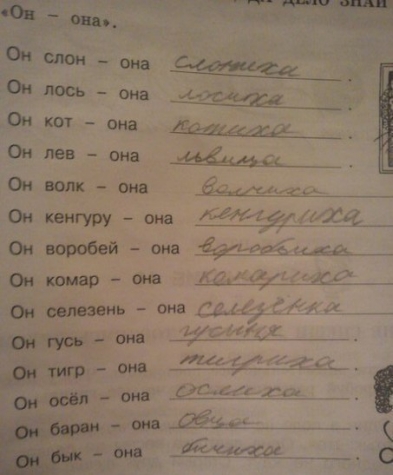 ДА ДЕЛО ЗНАЙ
«Он – она».
Он слон – она слониха.
Он лось – она лосиха.
Он кот – она котиха.
Он лев – она львица.
Он волк – она волчиха
Он кенгуру – она кенгуриха
Он воробей – она воробьиха
Он комар – она комариха
Он селезень – она селезёнка
Он гусь – она гусыня.
Он тигр – она тигриха.
Он осёл – она ослиха.
Он баран – она овца.
Он бык – она бычиха.